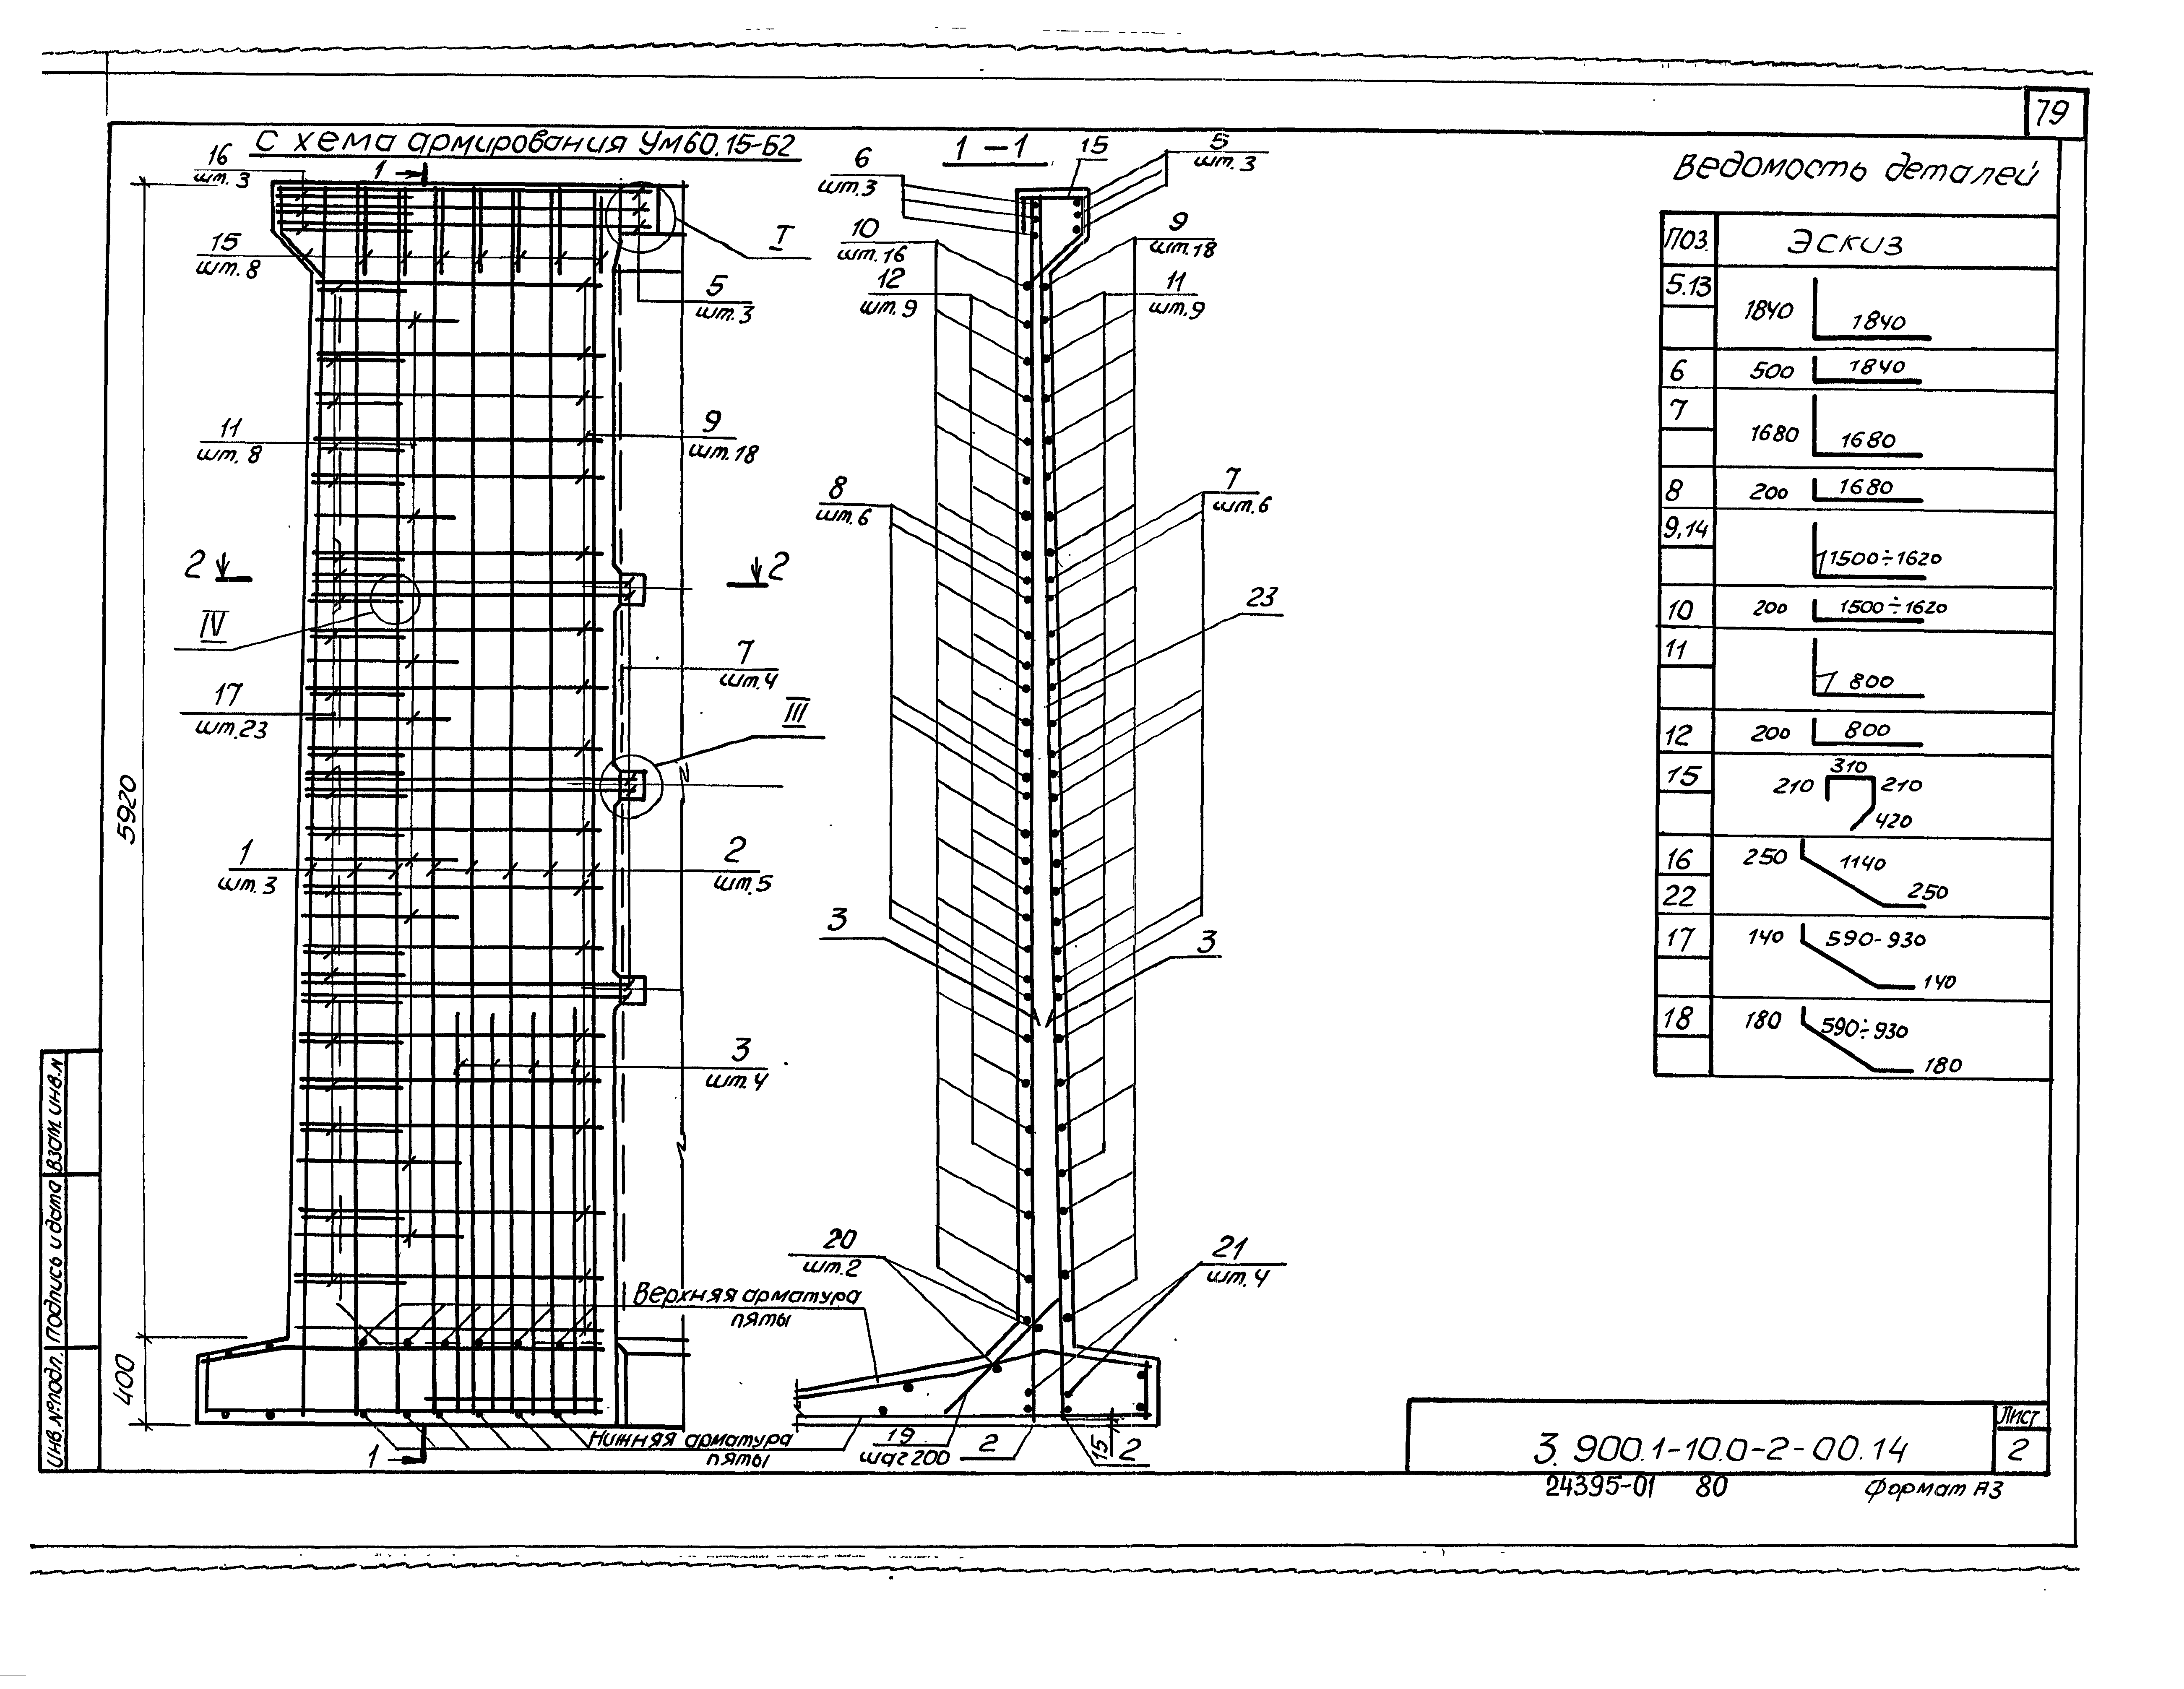 79
Схема армирования Ум60.15-Б2
16
шт.3
1
15
шт. 8
I
5
шт.3
11
шт. 8
9
шт.18
2
2
IV
7
шт.4
17
шт.23
III
5920
1
шт. 3
2
шт.5
3
шт.4
Верхняя арматура
пяты
400
Нижняя арматура
пяты
1
1-1
6
шт.3
15
5
шт.3
10
шт.16
9
шт.18
12
шт.9
11
шт.9
8
шт.6
7
шт.6
23
3
3
20
шт.2
21
шт.4
19
шаг 200
2
15
2
Ведомость деталей
ПОЗ.
Эскиз
5.13
1840
1840
6
500
1840
7
1680
1680
8
200
1680
9,14
1500÷1620
10
200
1500÷1620
11
800
12
200
800
15
310
210
210
420
16
22
250
1140
250
17
140
590-930
140
18
180
590÷930
180
Взам. инв.№
Подпись и дата
Инв.№подл.
3.900.1-10.0-2-00.14
Лист
2
24395-01 80
Формат А3